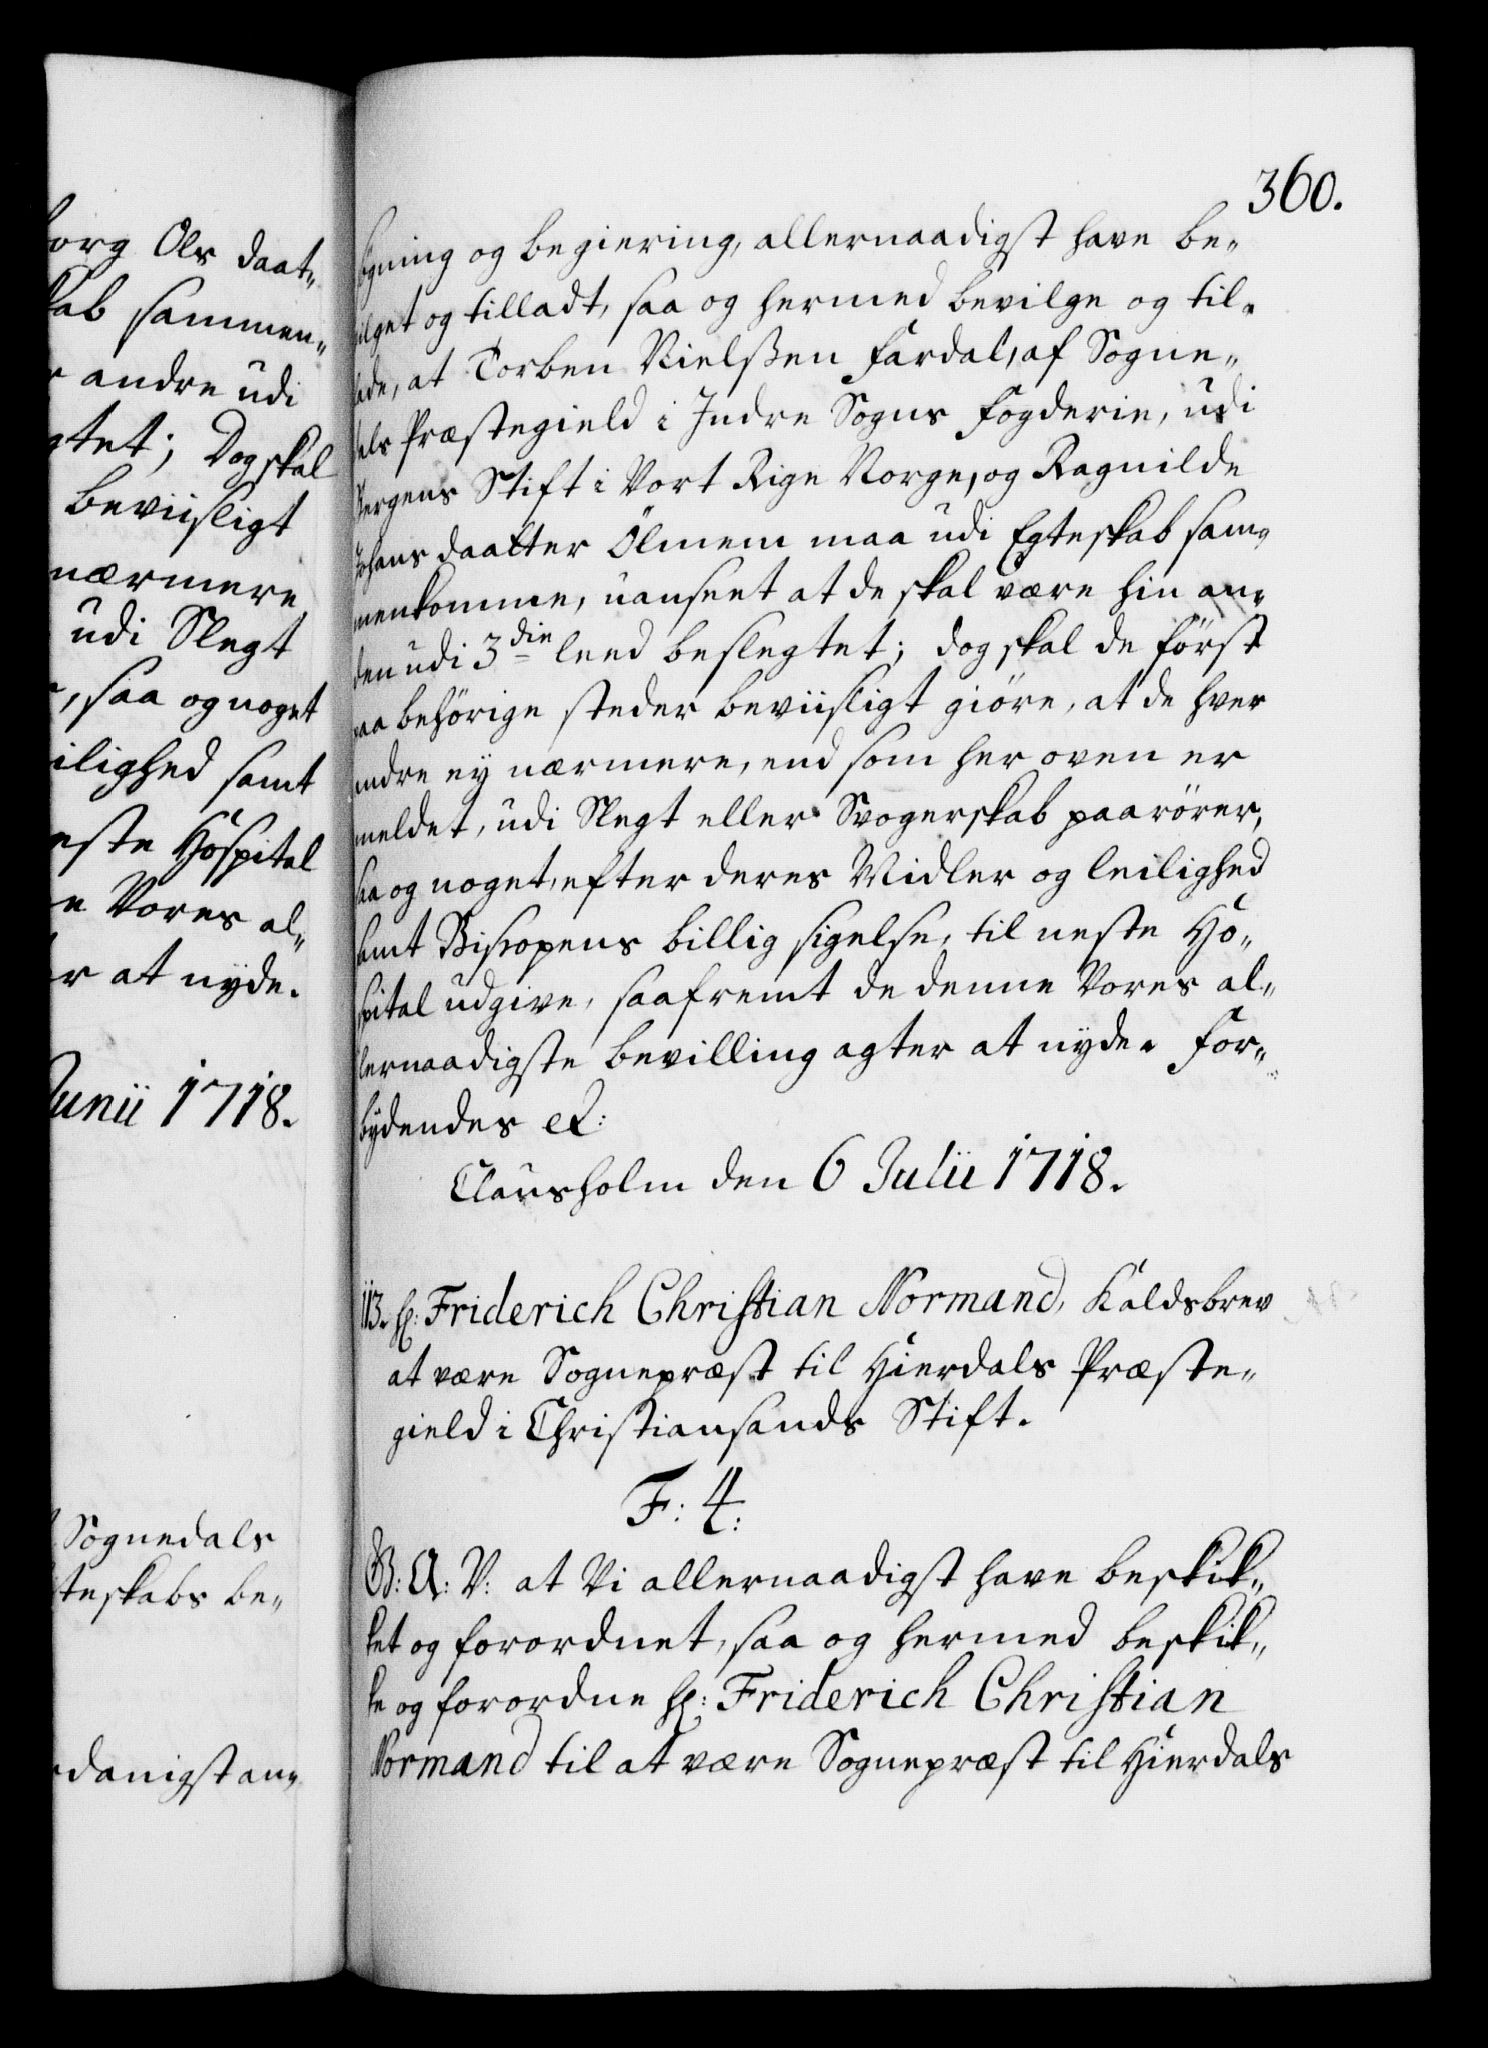 borg Ols daat„
kab sammen„
andre udi
gtet; Dog skal
beviisligt
nærmere
udi Slegt
, saa og noget
ilighed samt
este Hospital
e Vores al„
r at nyde.
Junii 1718.
Sognedals
teskabs be„
danigst an„
360.
søgning og begiering, allernaadigst have be„
vilget og tilladt, saa og hermed bevilge og til„
lade, at Torben Nielsßen Fardal, af Sogne„
dals Præstegield i Indre Sogns Fogderie, udi
Bergens Stift i Vort Rige Norge, og Ragnilde
Johans daatter Ölmem maa udi Egteskab sam„
menkomme, uanseet at de skal være hin an„
den udi 3die leed beslegtet; dog skal de först
paa behörige steder beviisligt giöre, at de hver
andre ey nærmere, end som her oven er
meldet, udi Slegt eller Svogerskab paarörer,
saa og noget, efter deres Midler og leilighed
samt Bispens billig sigelse, til neste Ho„
spital udgive, saafremt de denne Vores al„
lernaadigste bevilling agter at nyde. For„
bydendes etc:
Clausholm den 6 Julii 1718.
113. Hr: Friderich Christian Normand, Kaldsbrev
at være Sognepræst til Hierdals Præste„
gield i Christiansands Stift.
F: 4:
G: A: V: at Vi allernaadigst have beskik„
ket og forordnet, saa og hermed beskik„
ke og forordne Hr: Friderich Christian
Normand til at være Sognepræst til Hierdals